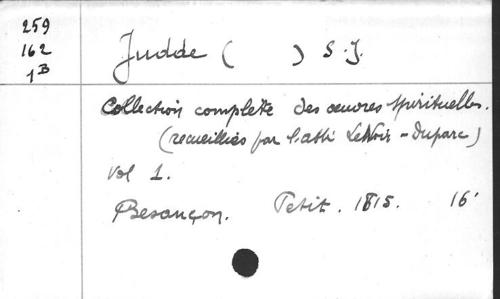 259
162
1B
Judde ( ) S.J.
Collection complete des œuvres spirituelles.
(recueillies par l'abbé LeNoir-Duparc)
Vol 1.
Besançon. Petit. 1815. 16°